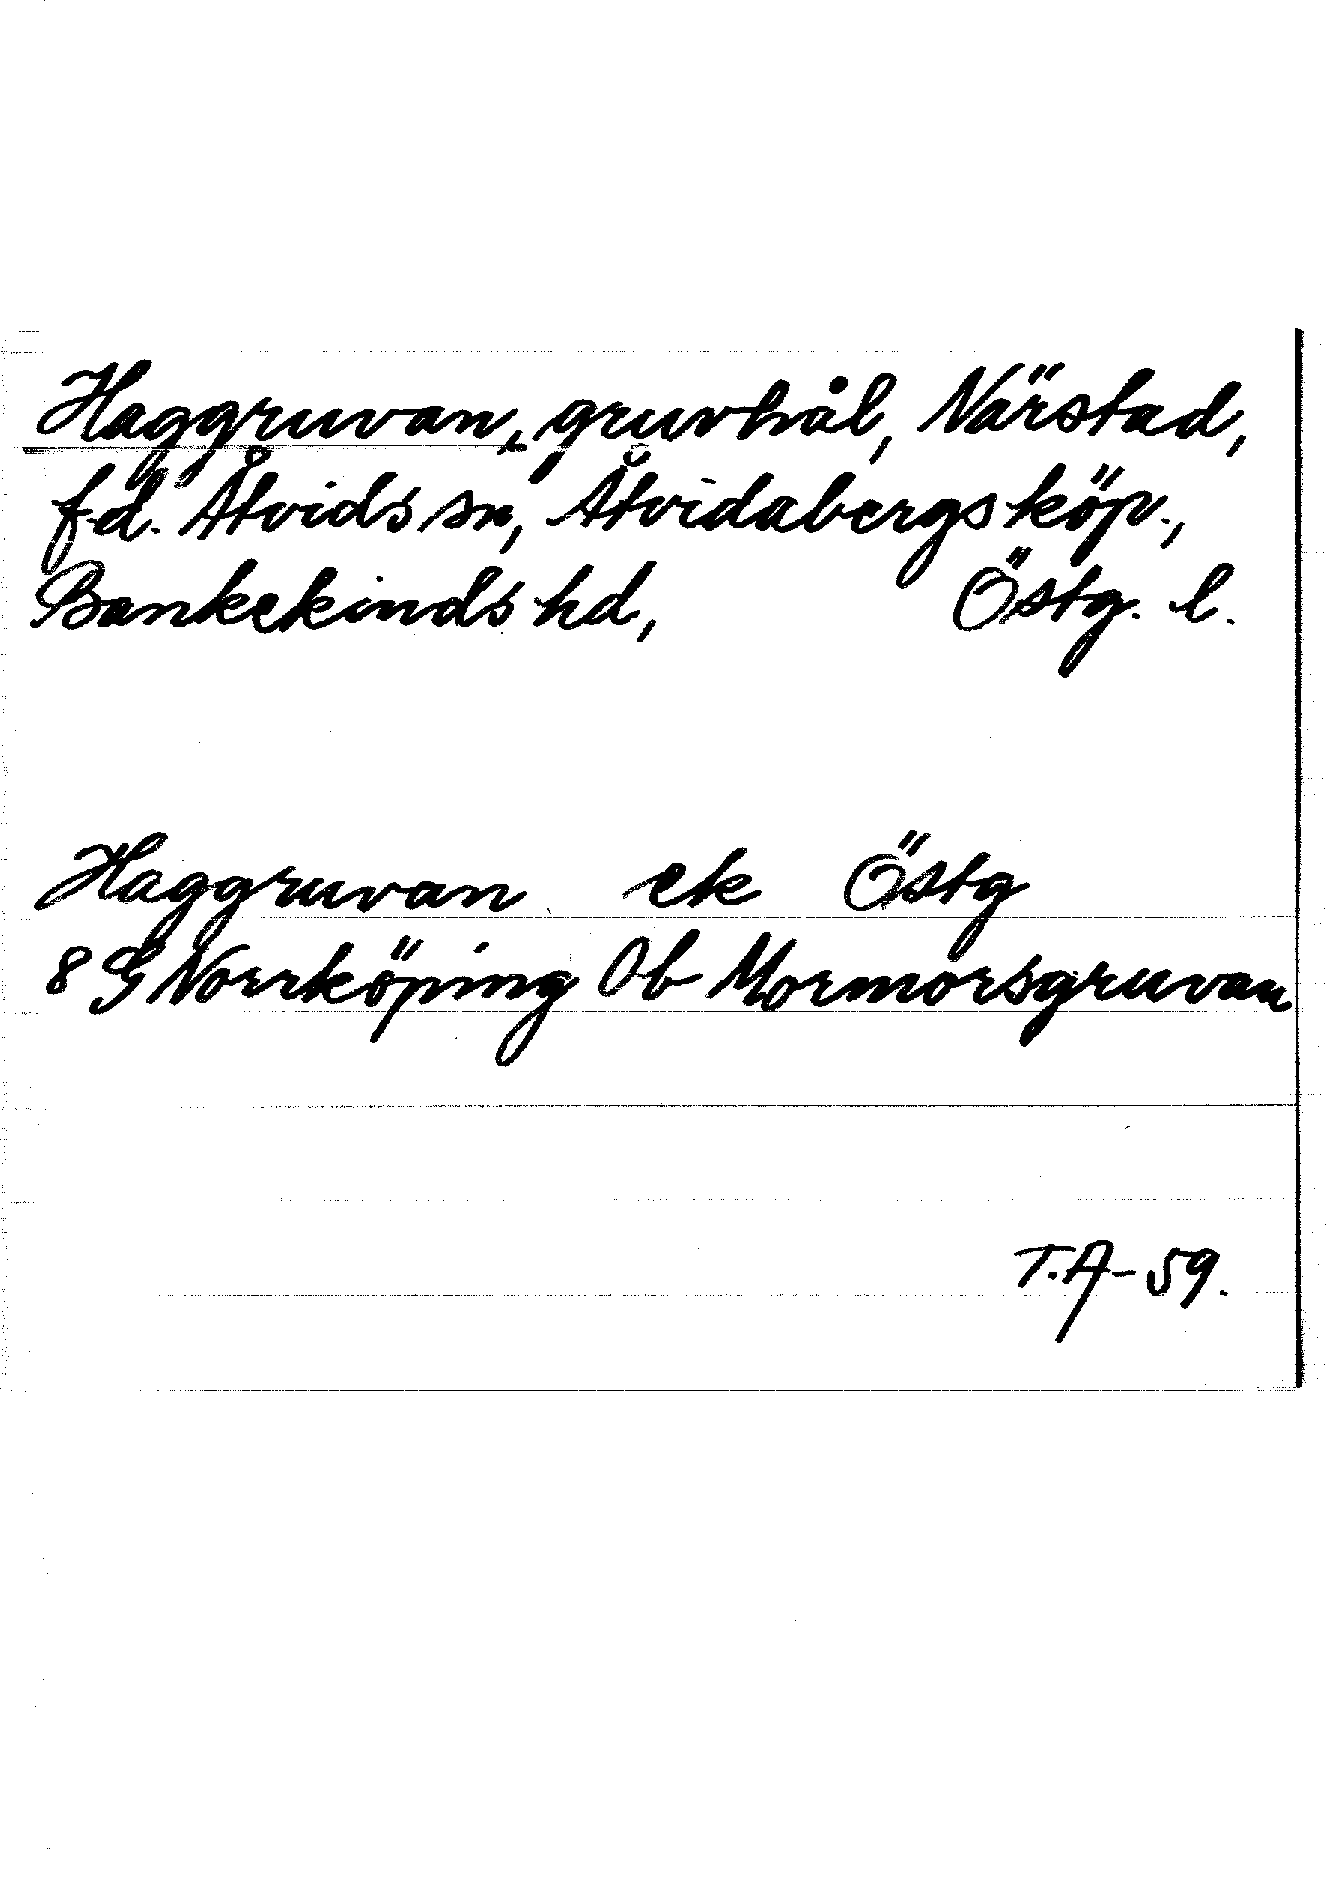 Haggruvan, gruvhål, Närstad,
f.d. Åtvids sn, Åtvidabergs köp.,
Bankekinds hd, Östg. l.
Haggruvan ek Östg
8 G Norrköping 0b Mormorsgruvan
T.A-59.